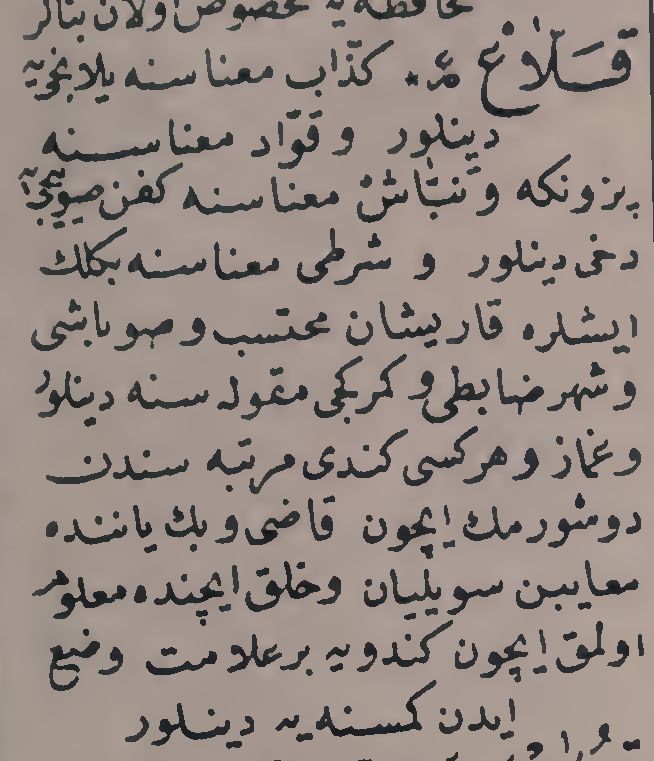 محافظه يه مخصوص اولان بنالر
قَلاّع م* كذّاب معناسنه يلانجى يه
دينلور و قوّاد معناسنه
پزونكه و نبّاش معناسنه كفن صويجى يه
دخى دينلور و شرطى معناسنه بكلك
ايشلره قاريشان محتسب و صوباشى
و شهر ضابطى و كمركجى مقوله سنه دينلور
و غماز و هركسى كندى مرتبه سندن
دوشورمك ايچون قاضى و بك ياننده
معايبن سويليان و خلق ايچنده معلوم
اولمق ايچون كندويه بر علامت وضع
ايدن كمسنه يه دينلور